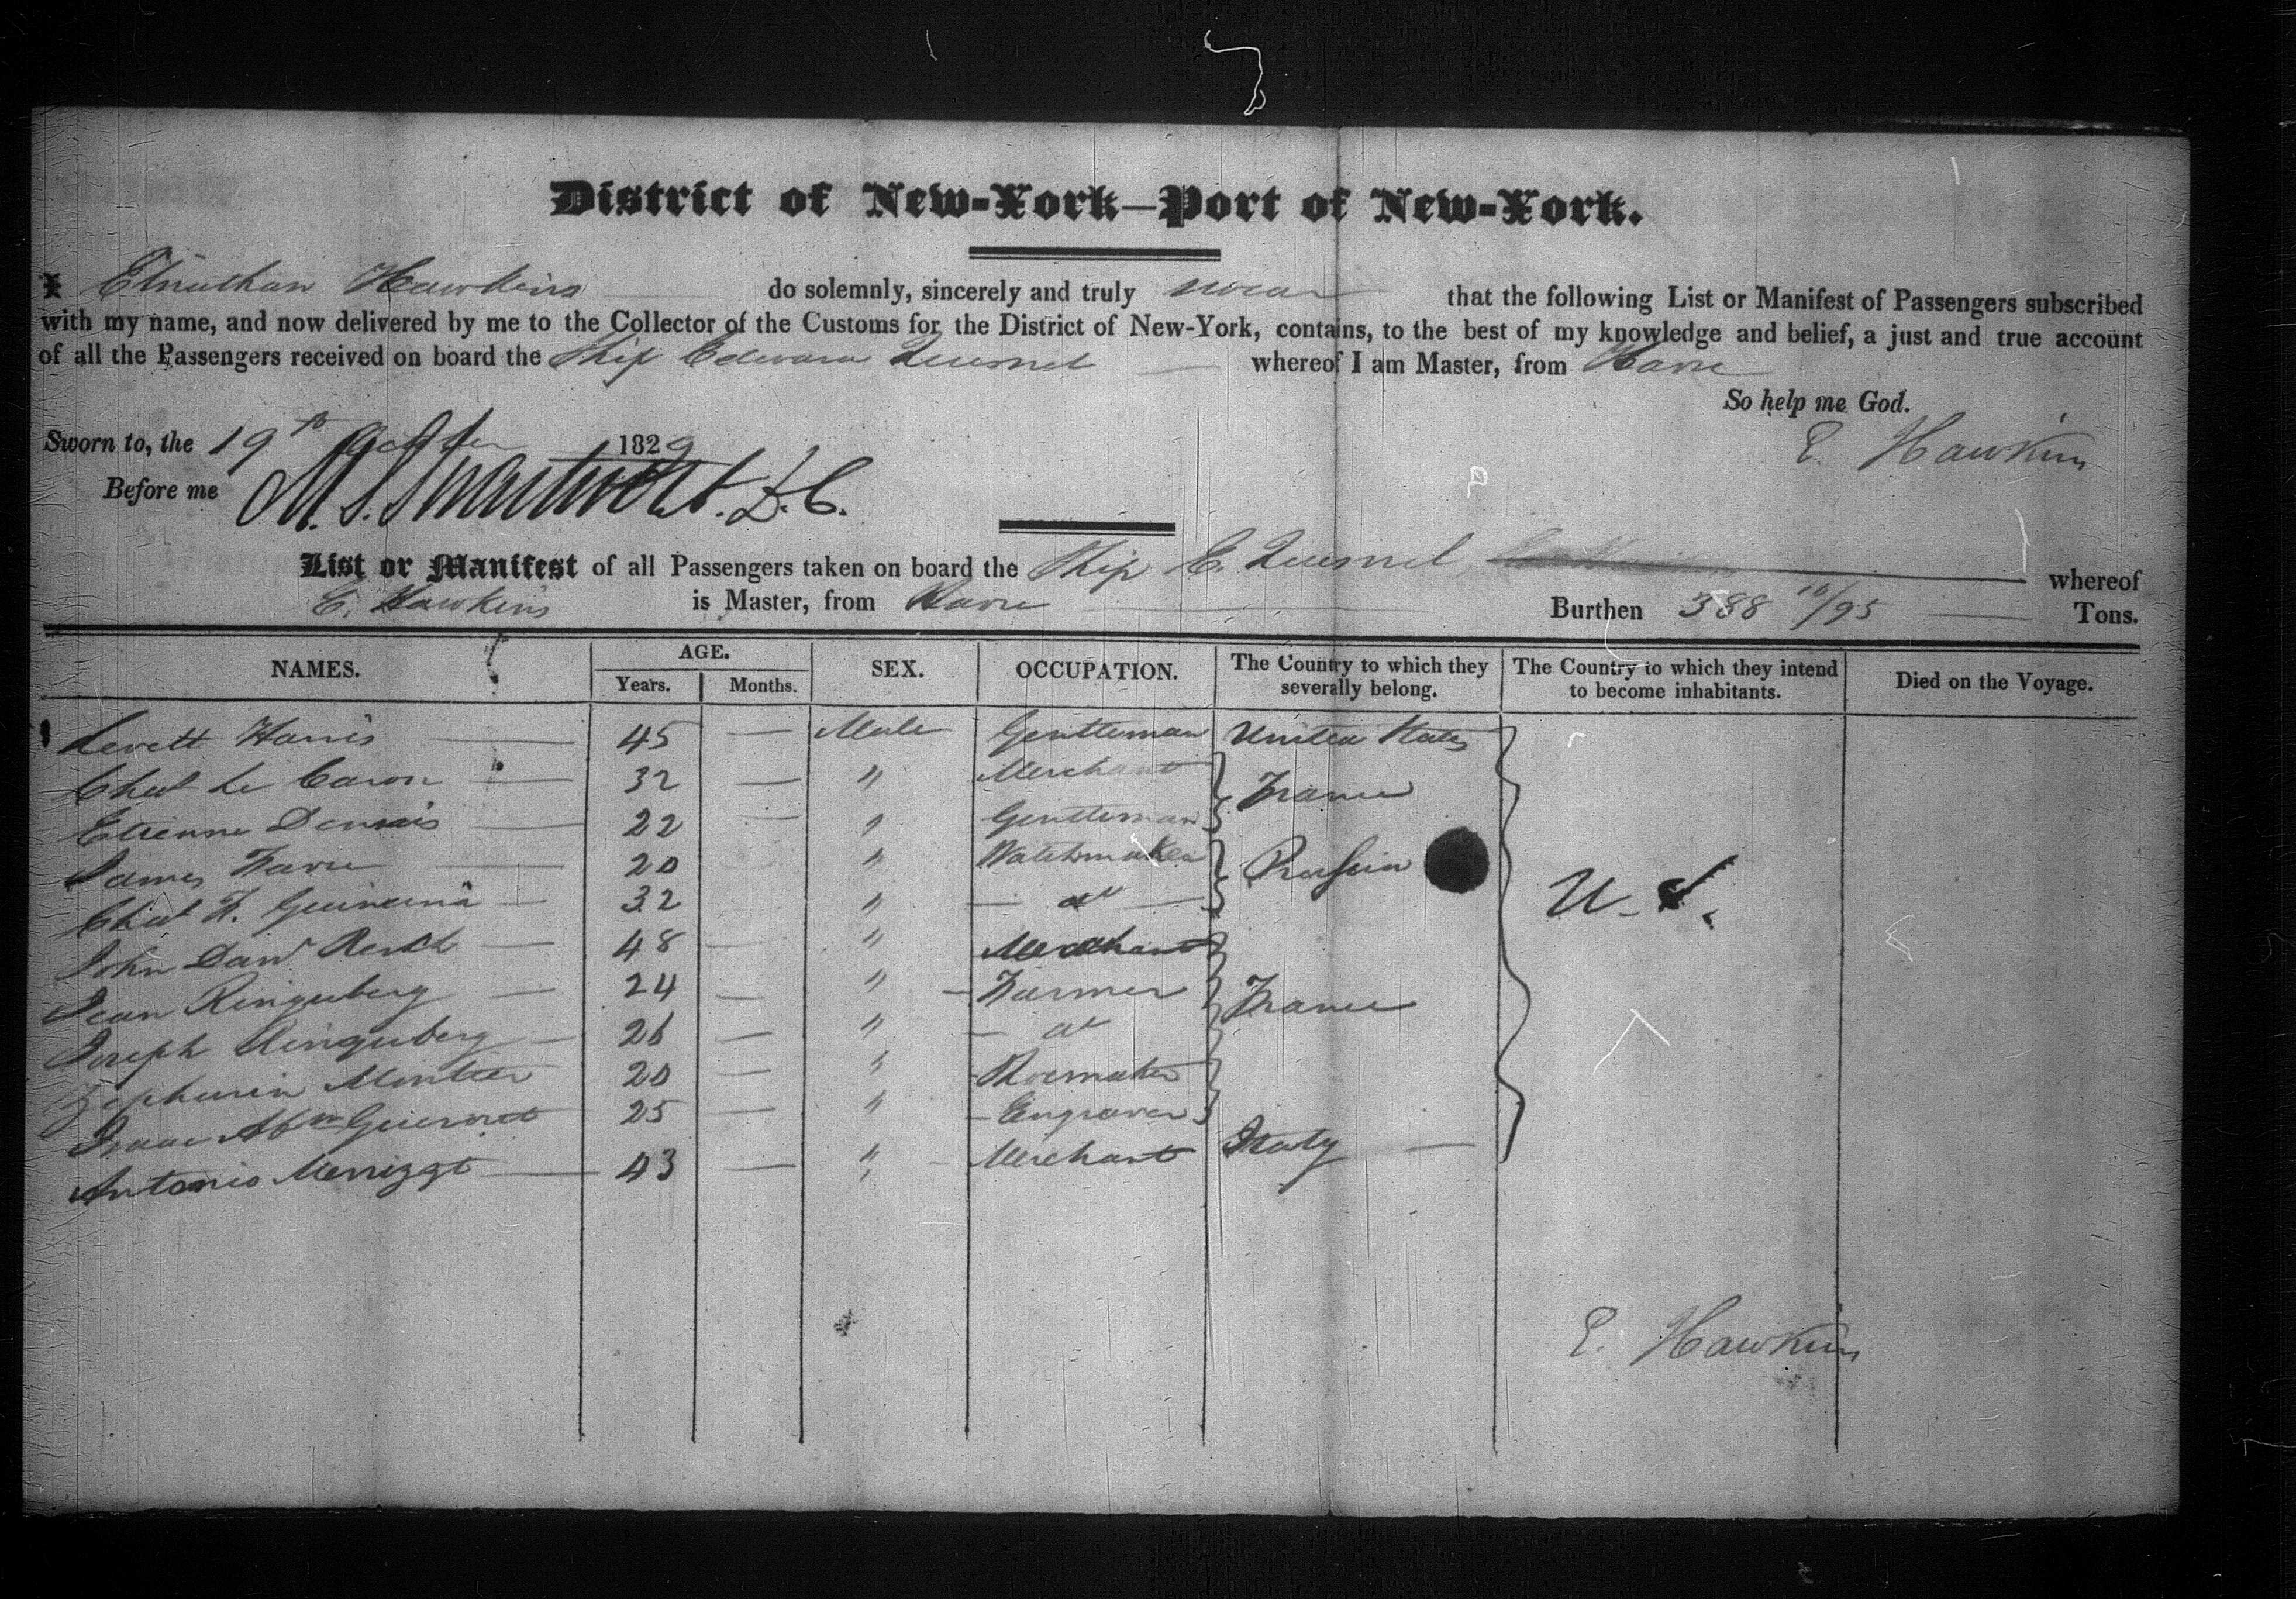 District of New-York—Port of New-York.
I Elnathan Hawkins do solemnly, sincerely and truly swear that the following List or Manifest of Passengers subscribed
with my name, and now delivered by me to the Collector of the Customs for the District of New-York, contains, to the best of my knowledge and belief, a just and true account
of all the Passengers received on board the Ship Edward Quesnel whereof I am Master, from Havre
So help me God.
Sworn to, the 19th October 1829 E. Hawkins
Before me M. S. Swartwout. D.C.
List or Manifest of all Passengers taken on board the Ship E. Quesnel whereof
E. Hawkins is Master, from Havre Burthen 388 10/95 Tons.
NAMES. AGE. Years. Months. SEX. OCCUPATION. The Country to which they severally belong. The Country to which they intend to become inhabitants. Died on the Voyage.
Levett Harris — 45 — Male Gentleman United States
Chas Le Caron — 32 — " Merchant France
Etienne — 22 — " Gentleman
James Favre — 20 " Watchmaker Prussia
Chas F. — 32 " — do —
John David — 48 — " Merchant U.S.
Jean Ringuberg — 24 — " Farmer France
Joseph Ringuberg — 26 — " — do
Zephurin — 20 — " Shoemaker
Isaac Abm — 25 — " Engraver
Antonio — 43 — " Merchant Italy —
E. Hawkins